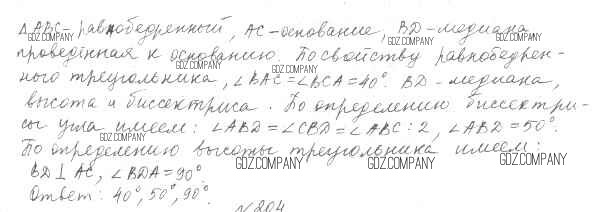 △ABC - равнобедренный, AC - основание, BD - медиана
проведённая к основанию. По свойству равнобедрен-
ного треугольника, ∠BAC = ∠BCA = 40°. BD - медиана,
высота и биссектриса. По определению биссектри-
сы угла имеем: ∠ABD = ∠CBD = ∠ABC : 2, ∠ABD = 50°.
По определению высоты треугольника имеем:
BD ⊥ AC, ∠BDA = 90°.
Ответ: 40°, 50°, 90°.
№ 204
GDZ.COMPANY
GDZ.COMPANY
GDZ.COMPANY
GDZ.COMPANY
GDZ.COMPANY
GDZ.COMPANY
GDZ.COMPANY
GDZ.COMPANY
GDZ.COMPANY
GDZ.COMPANY